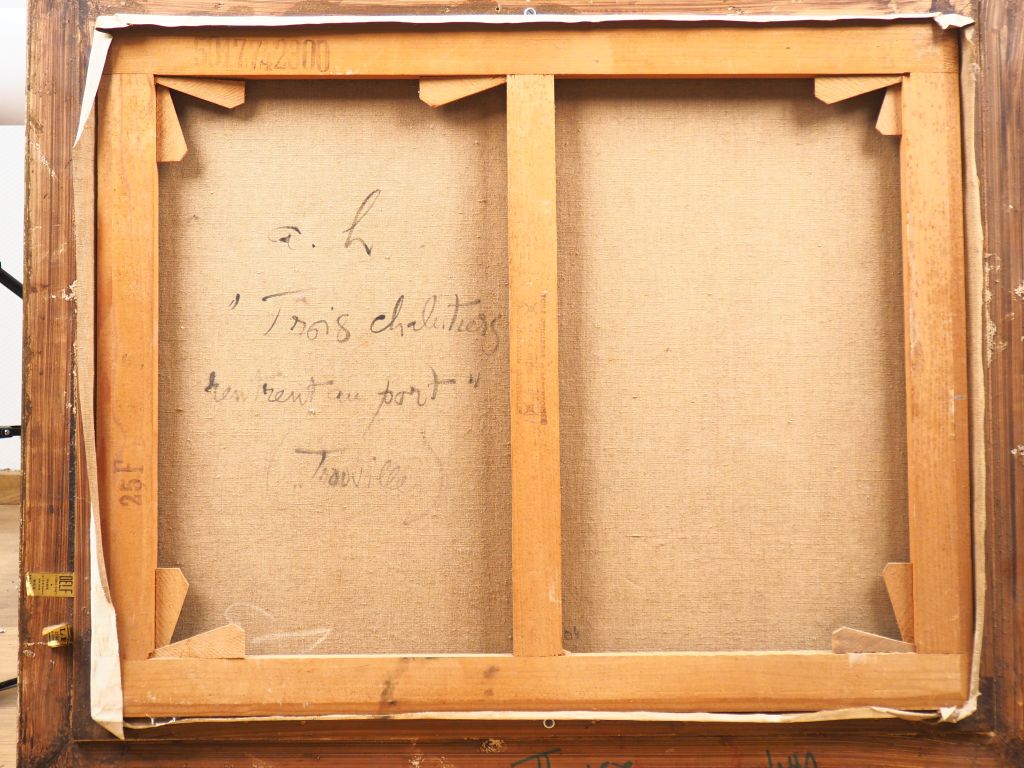 5017742300
a. h
" Trois chalutiers
rentrent au port "
(Trouville)
25F
DELF
04